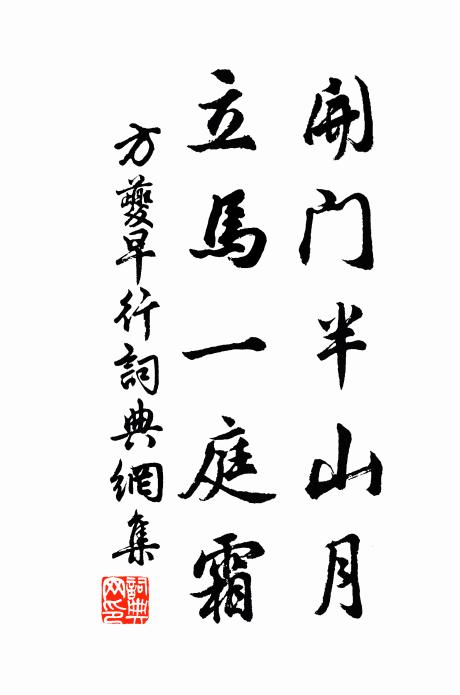 開門半山月
立馬一庭霜
方夔早行詞典網集
詞典網印